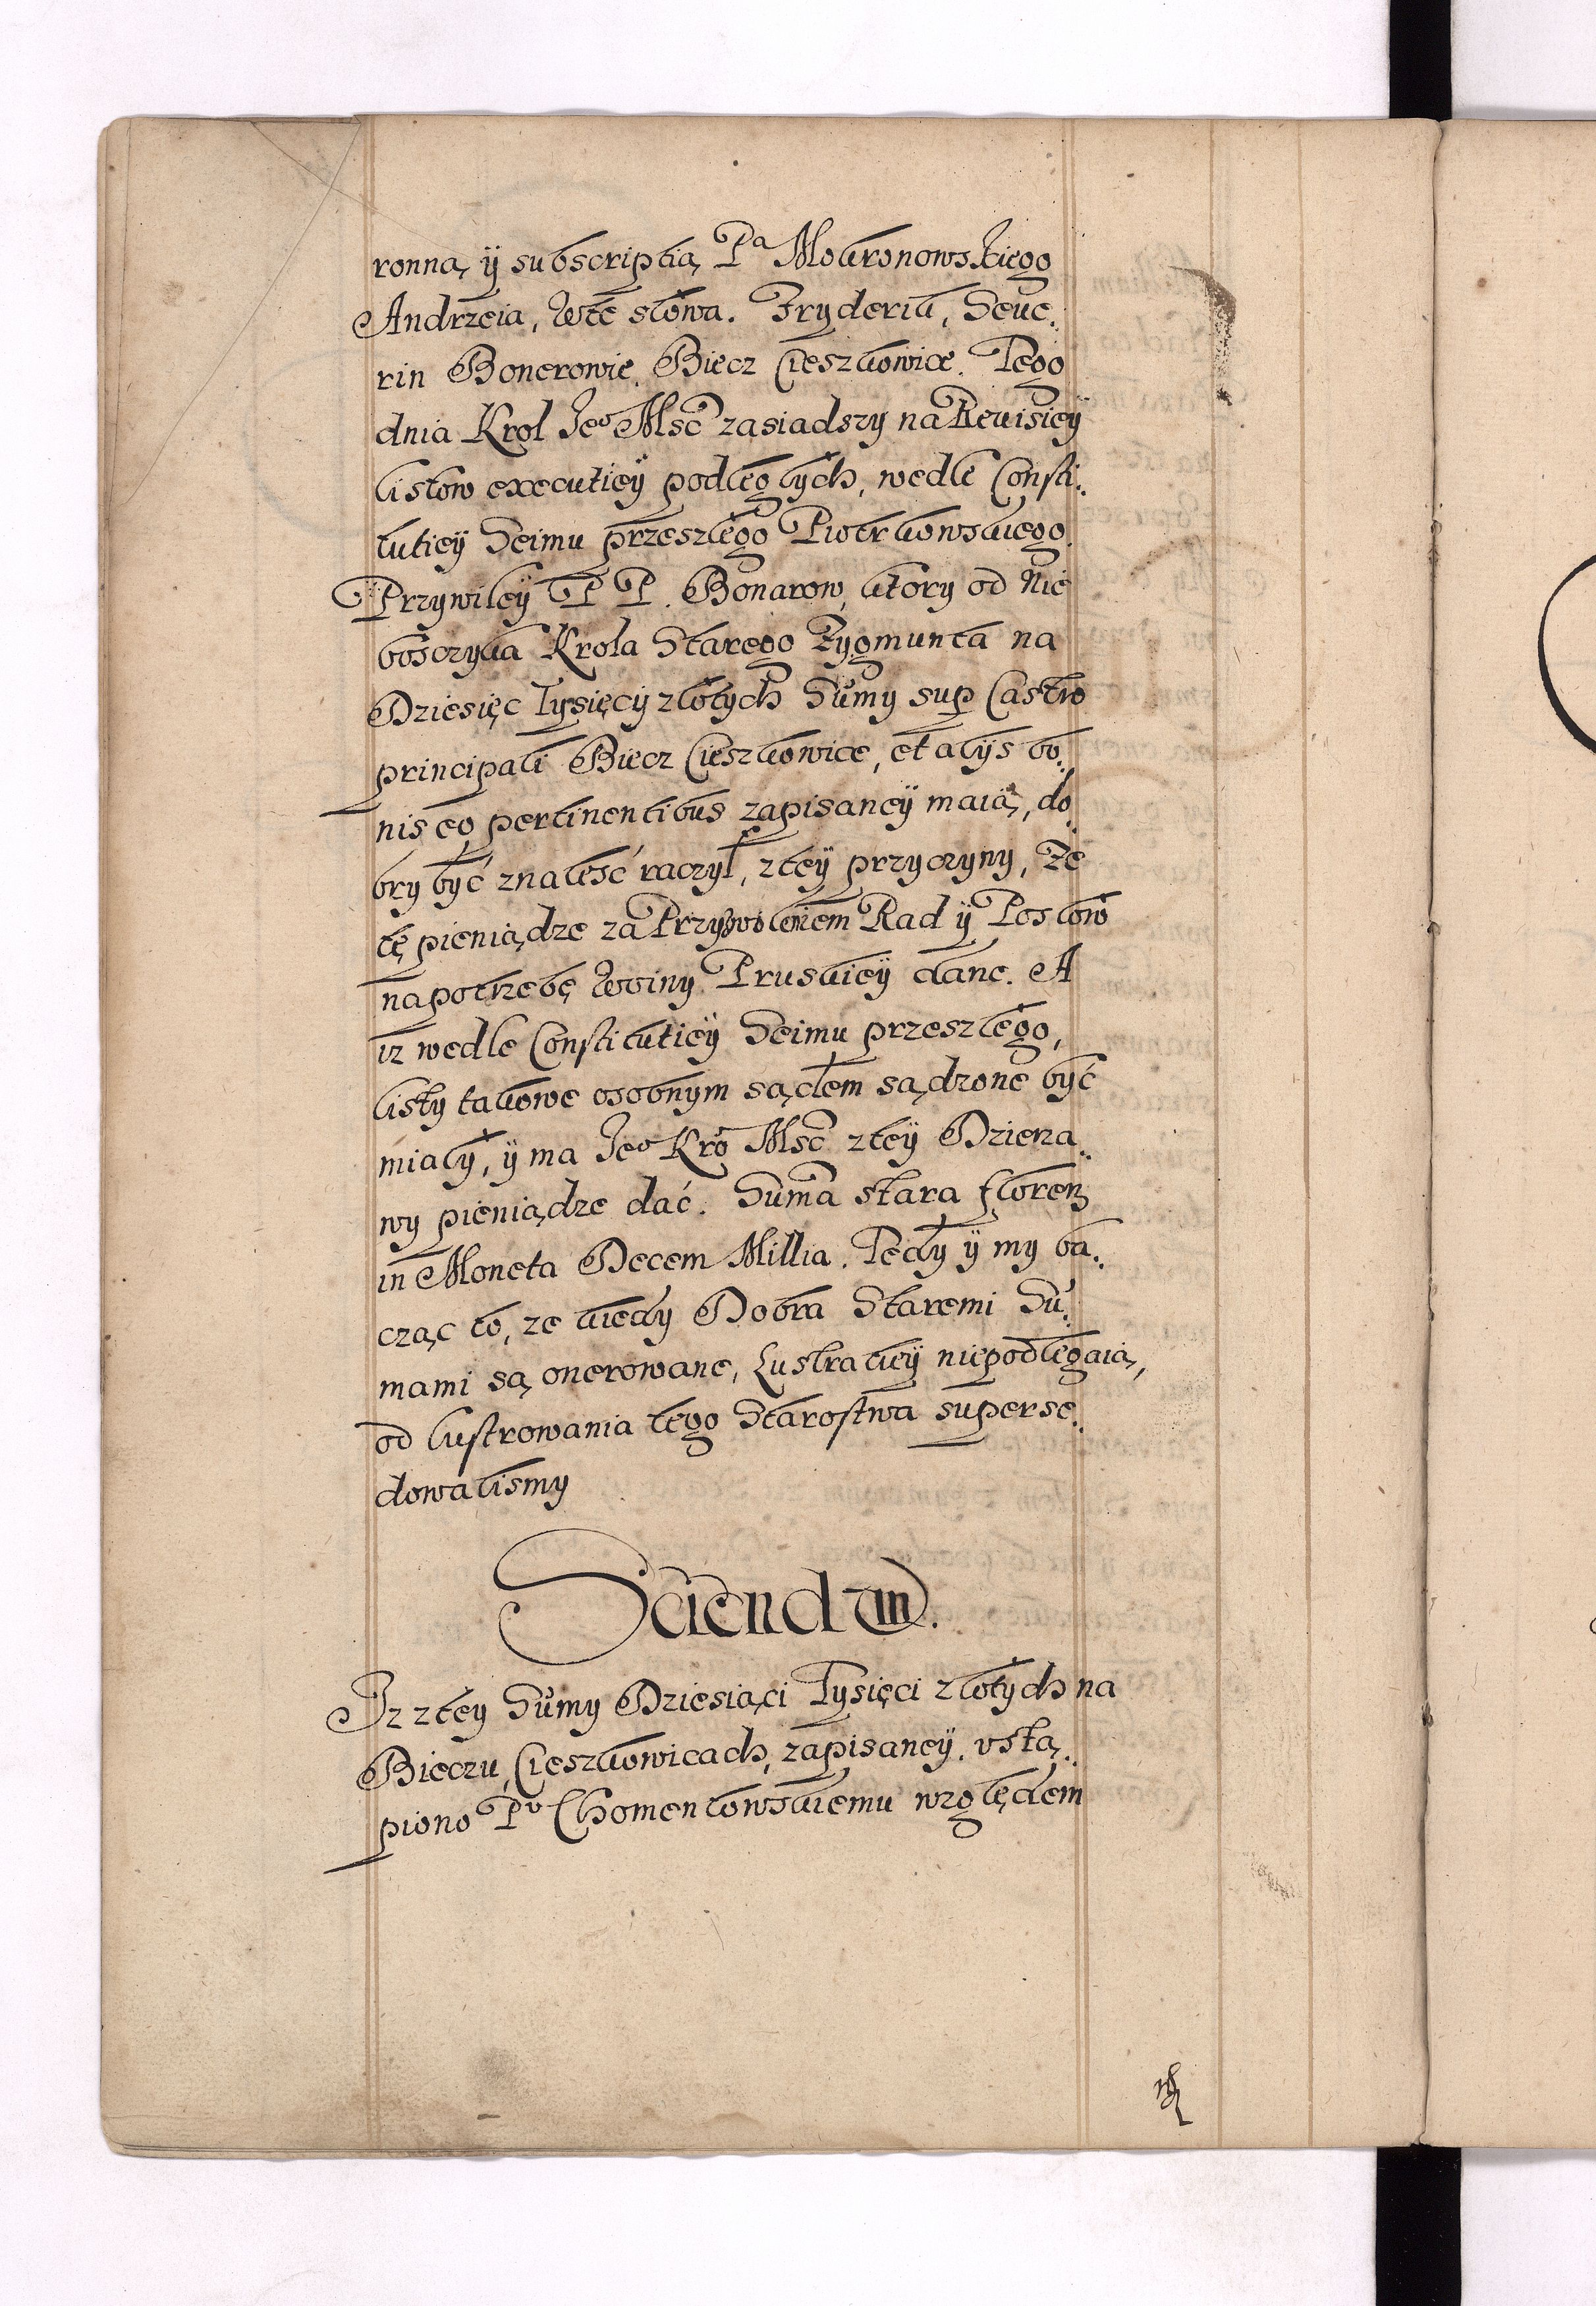 ronną ÿ subscriptią Pᵃ Mokronowskiego
Andrzeia, wte słowa. Fryderik, Seue:
rin Bonerowie. Biecz Cieszkowice. Tego
dnia Krol Jeᵒ Msć zasiadszy na Reuisieÿ
listow executieÿ podległych, wedle Consti:
tutieÿ Seimu przeszłego Piotrkowskiego.
Przywileÿ P P. Bonarow, ktory od Nie
bosczyka Krola Starego Zygmunta na
Dziesięc Tysięcÿ złotych Sumy sup Castro
principali Biecz Cieszkowice, et alÿs bo:
nis eo pertinentibus zapisaneÿ maią, do
bry być znaleść raczył, zteÿ przyczyny, że
tę pieniądze za Przyzwoleniem Rad ÿ Posłow
na potrzebę Woiny Pruskieÿ dane. A
iz wedle Constitutieÿ Seimu przeszłego,
listy takowe osobnym sądem sądzone być
miały, ÿ ma Jeᵒ Kro Msć zteÿ Dzierza:
wy pieniądze dać. Suma stara floren
in Moneta Decem Millia. Tedy ÿ my ba:
cząc to, ze kiedy Dobra Staremi Su:
mami są onerowane, Lustratieÿ niepodlegaią,
od lustrowania tego Starostwa superse:
dowalismy
Sciendum.
Jz ztey Sumy Dziesiąci Tysięci złotych na
Bieczu, Cieszkowicach, zapisaneÿ. vstą:
piono Pᵘ Chomentowskiemu względem